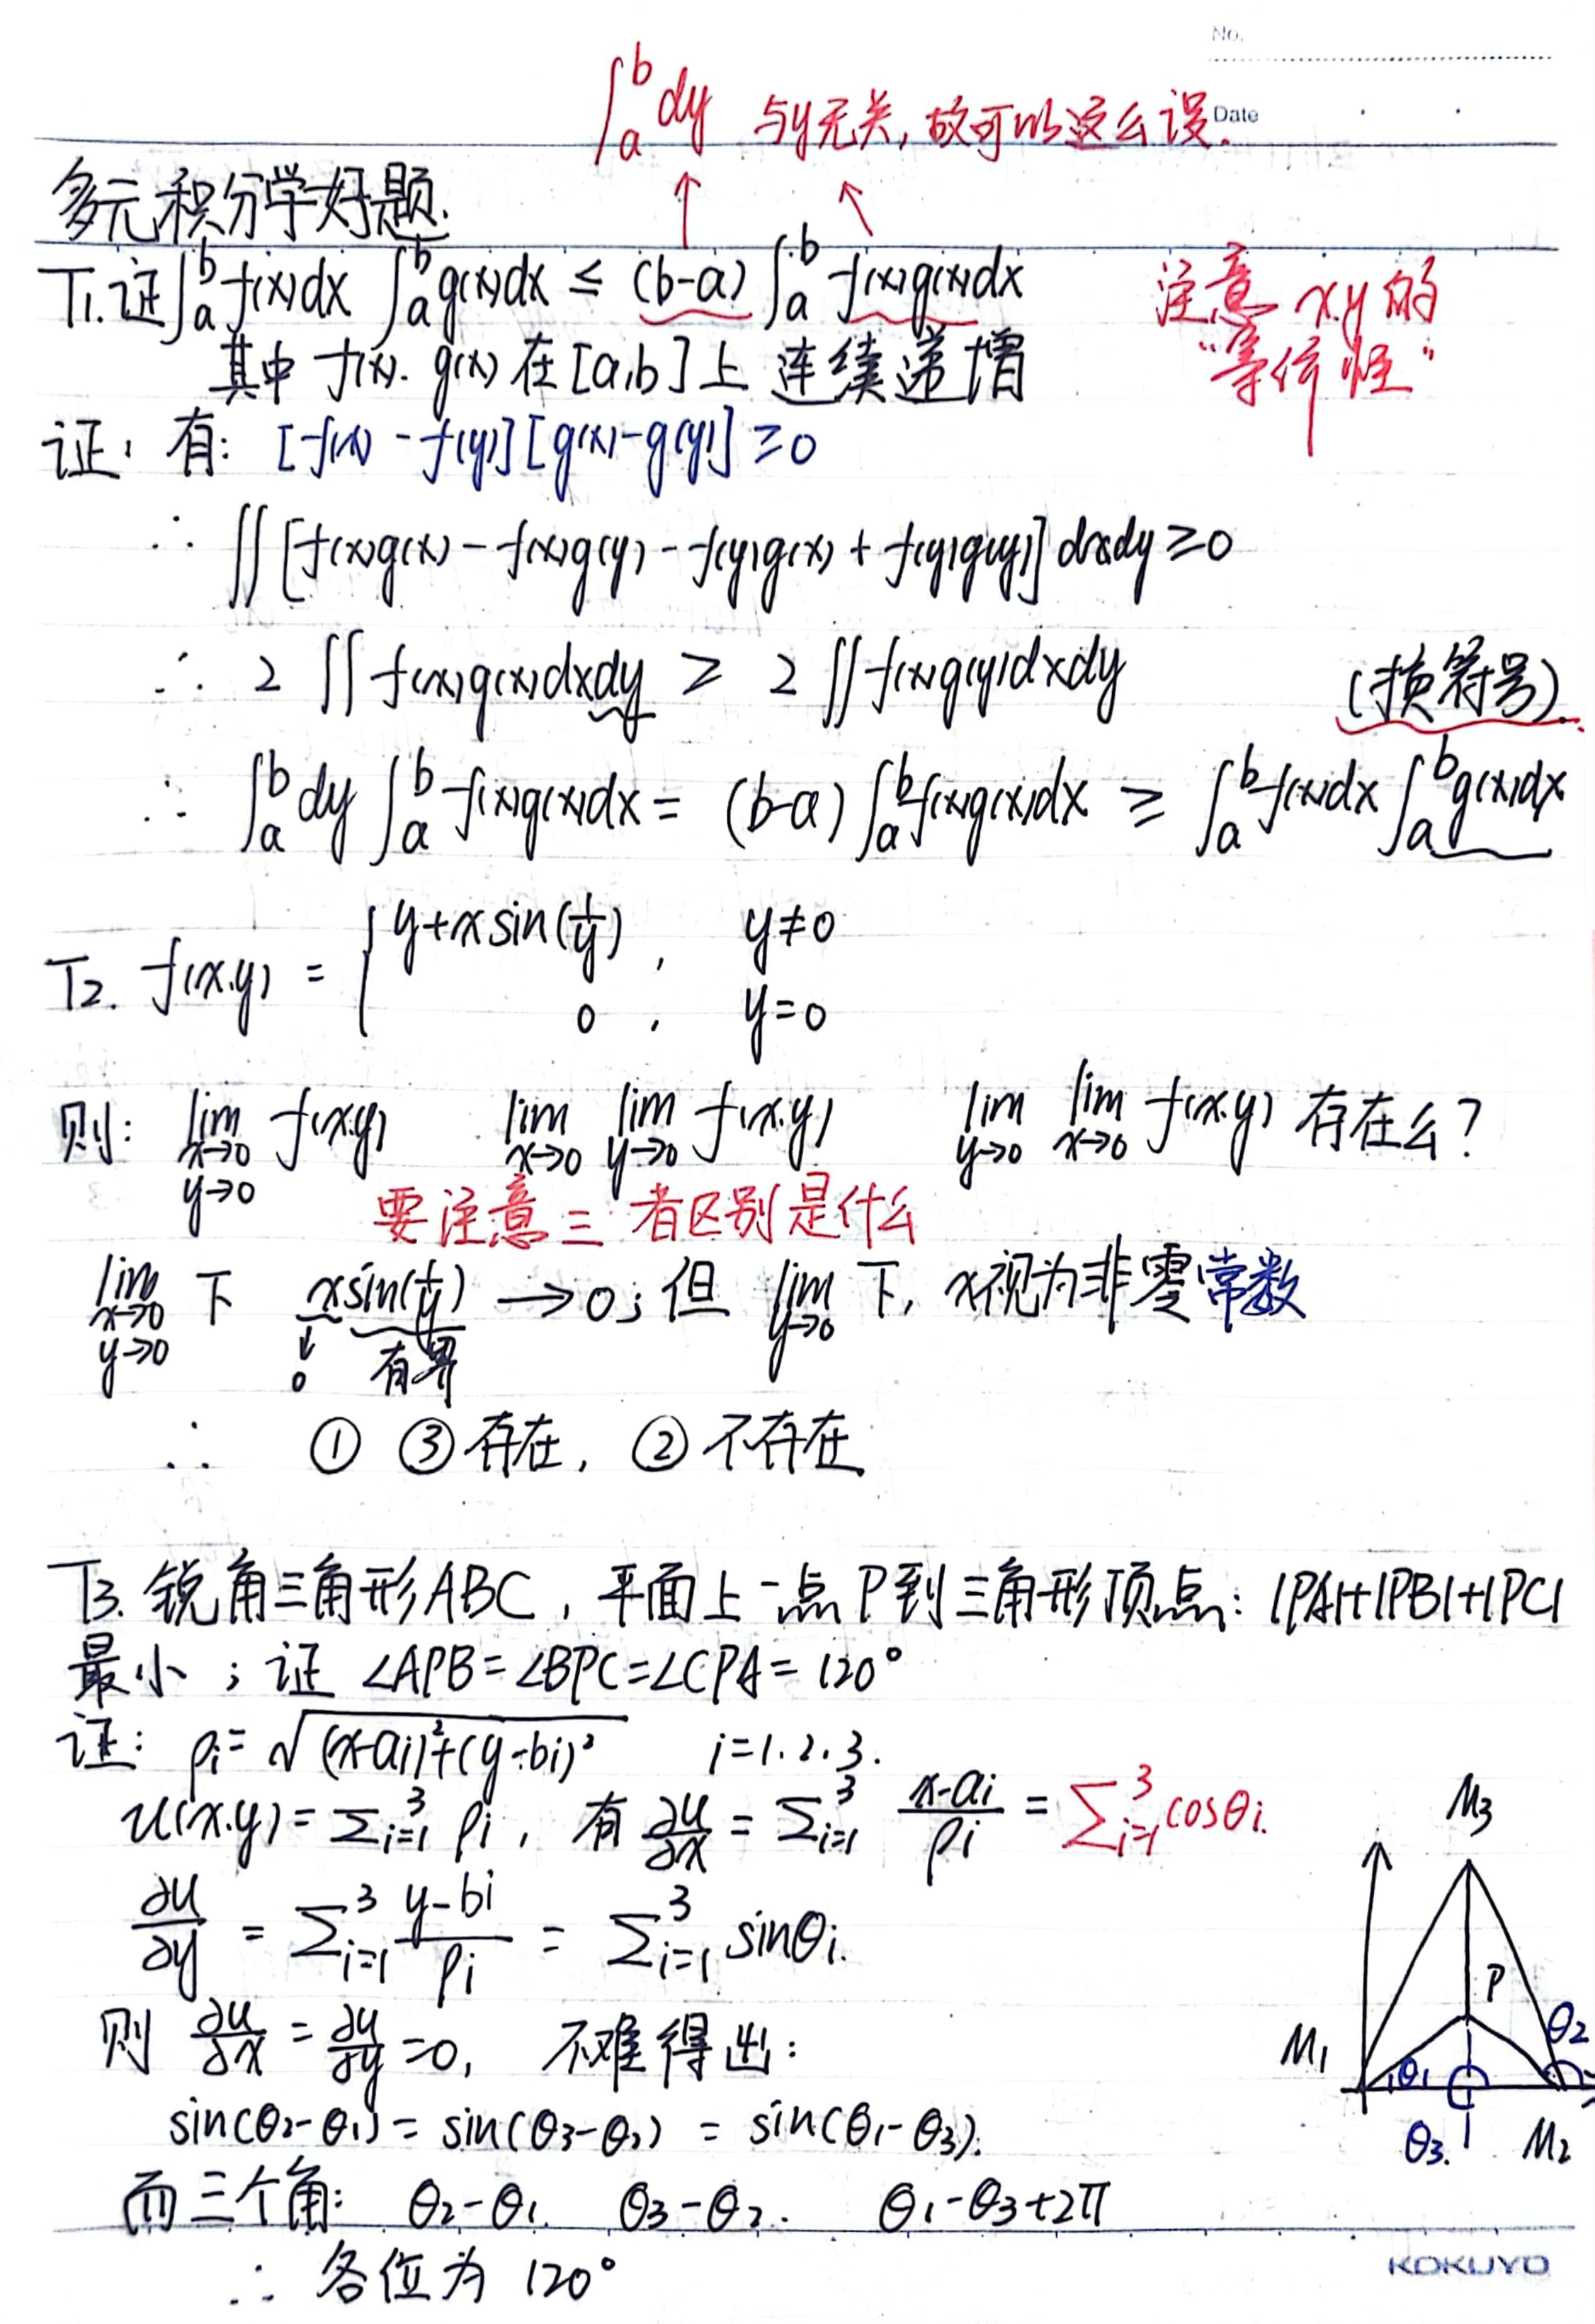 No.
Date
∫_a^b dy 与y无关,故可以这么设.
多元积分学好题.
T1.证∫_a^b f(x)dx ∫_a^b g(x)dx ≤ (b-a) ∫_a^b f(x)g(x)dx
注意 x.y 的
其中 f(x). g(x) 在[a,b]上 连续递增
“等价性”
证: 有: [f(x) - f(y)][g(x)-g(y)] ≥0
∴ ∬[f(x)g(x) - f(x)g(y) - f(y)g(x) + f(y)g(y)] dxdy ≥0
∴ 2 ∬ f(x)g(x)dxdy ≥ 2 ∬ f(x)g(y)dxdy (换符号).
∴ ∫_a^b dy ∫_a^b f(x)g(x)dx = (b-a) ∫_a^b f(x)g(x)dx ≥ ∫_a^b f(x)dx ∫_a^b g(x)dx
T2. f(x.y) = { y+xsin(1/y), y≠0
0, y=0
则: lim_{x→0 y→0} f(x.y) lim_{x→0} lim_{y→0} f(x.y) lim_{y→0} lim_{x→0} f(x.y) 存在么?
要注意三者区别是什么
lim_{x→0 y→0} 下 xsin(1/y) →0; 但 lim_{y→0} 下, x视为非零常数
↓ 0 有界
∴ ① ③存在, ②不存在
T3. 锐角三角形ABC, 平面上一点P到三角形顶点: |PA|+|PB|+|PC|
最小; 证 ∠APB=∠BPC=∠CPA=120°
证: ρi= √((x-ai)²+(y-bi)²) i=1.2.3.
u(x.y)= Σ_{i=1}^3 ρi, 有 ∂u/∂x = Σ_{i=1}^3 (x-ai)/ρi = Σ_{i=1}^3 cosθi.
∂u/∂y = Σ_{i=1}^3 (y-bi)/ρi = Σ_{i=1}^3 sinθi.
则 ∂u/∂x = ∂u/∂y =0, 不难得出:
sin(θ2-θ1) = sin(θ3-θ2) = sin(θ1-θ3).
而三个角: θ2-θ1. θ3-θ2. θ1-θ3+2π
∴ 各位为 120°
M3
P
θ2
M1
θ1
θ3.
M2
KOKUYO